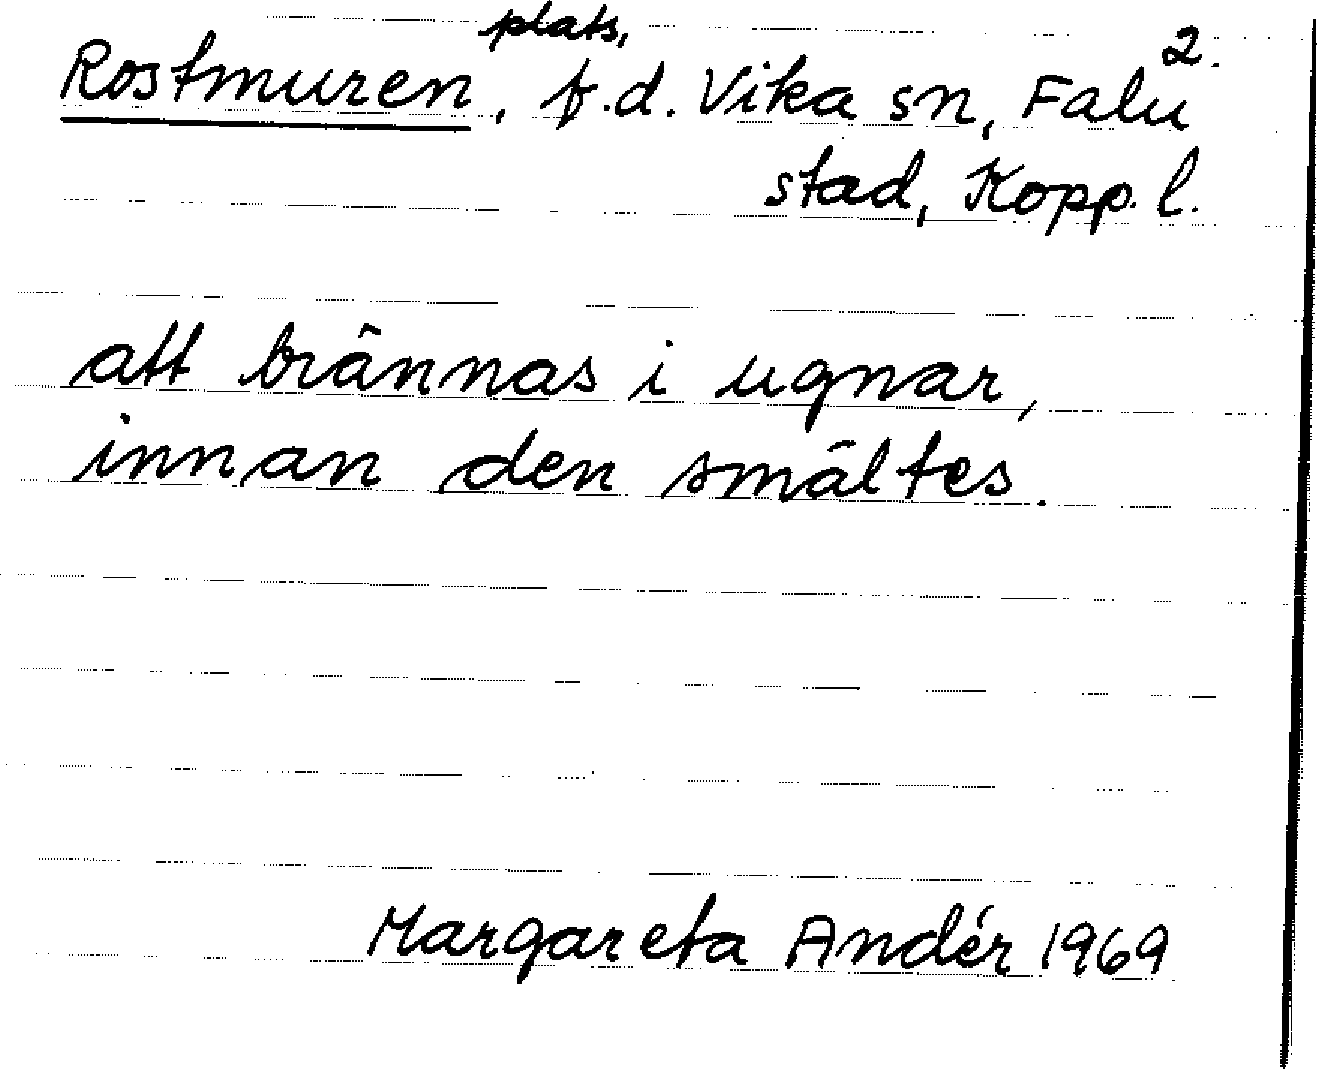 plats,
2.
Rostmuren, f.d. Vika sn, Falu
stad, Kopp. l.
att brännas i ugnar,
innan den smältes.
Margareta Andér 1969